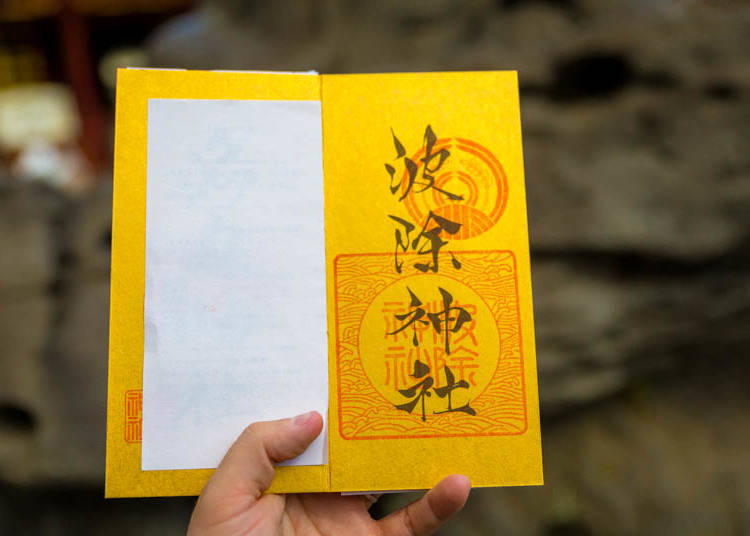 波除神社
波除
神社